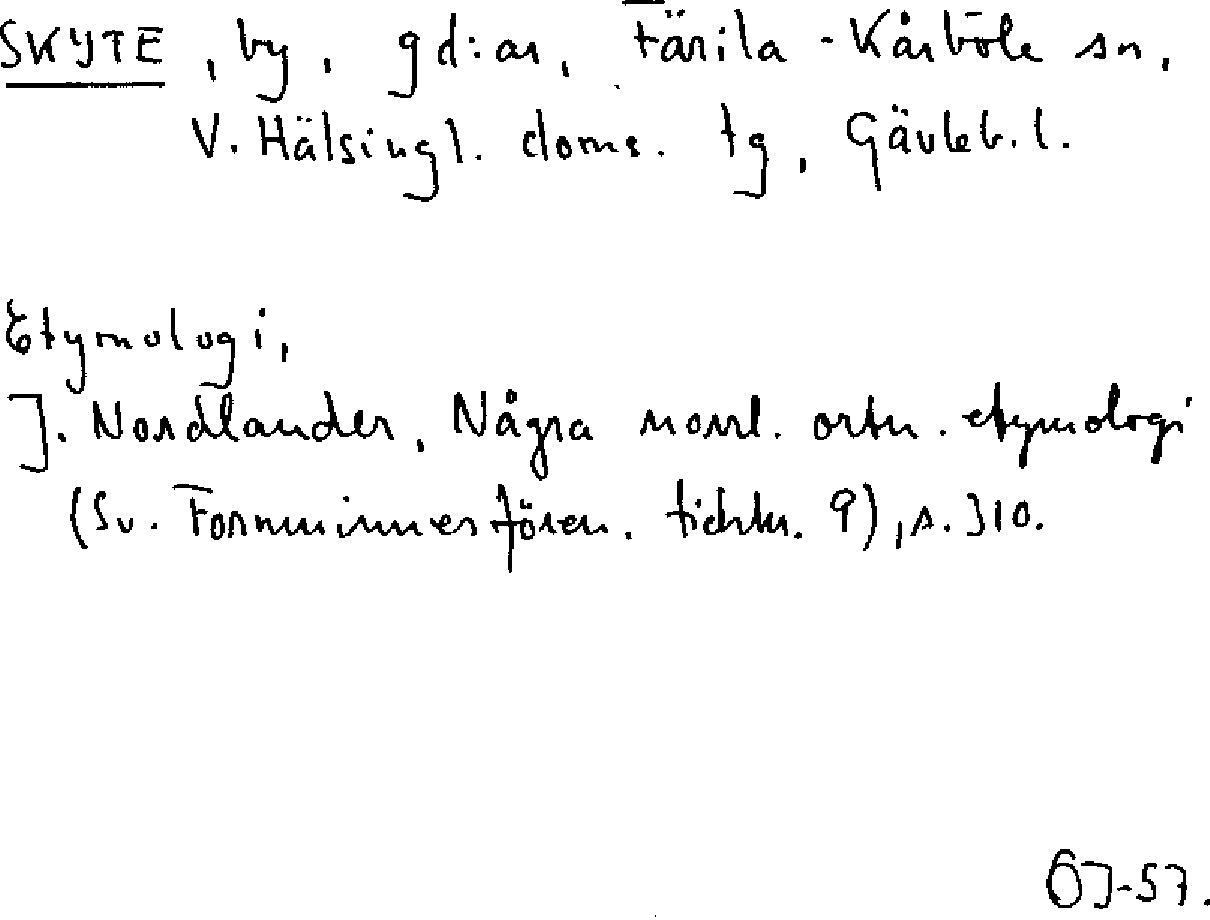 SKYTE, by, gd:ar, Färila-Kårböle sn,
V. Hälsingl. doms. tg, Gävleb. l.
Etymologi,
J. Nordlander, Några norrl. ortn. etymologi
(Sv. Fornminnesfören. tidskr. 9), s. 310.
ÖJ-57.